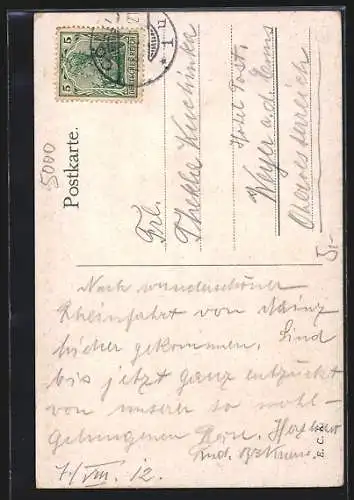 5
DEUTSCHES REICH
5000
Postkarte.
Frl.
Thekla
Hotel Post.
Weyer a. d. Enns
Oberösterreich
5.-
Nach wunderschöner
Rheinfahrt von Mainz
hieher gekommen. Sind
bis jetzt ganz entzückt
von unserer so wohl-
gelungenen Reise.
7/VIII. 12.
E. C. K.